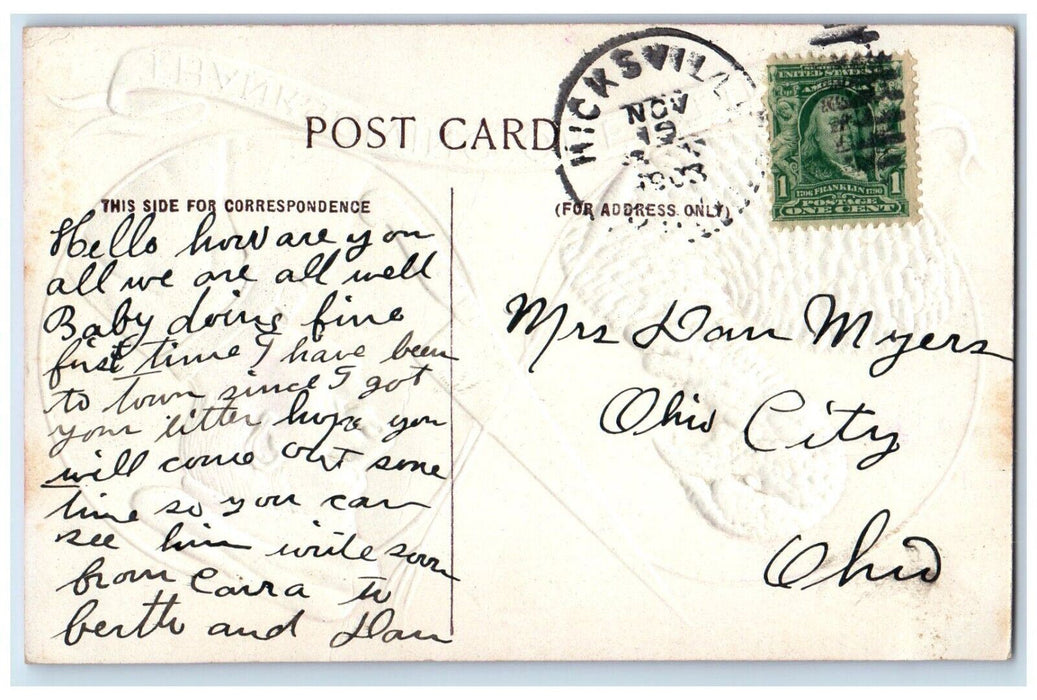 POST CARD
HICKSVILL
NOV
19
UNITED STATES
AMERICA
1 1706 FRANKLIN 1790 1
POSTAGE
ONE CENT
THIS SIDE FOR CORRESPONDENCE
(FOR ADDRESS ONLY)
Hello how are you
all we are all well
Baby doing fine
first time I have been
to town since I got
your litter hope you
will come out some
time so you can
see him write soon
from Carra to
berth and Dan
Mrs Dan Myers
Ohio City
Ohio